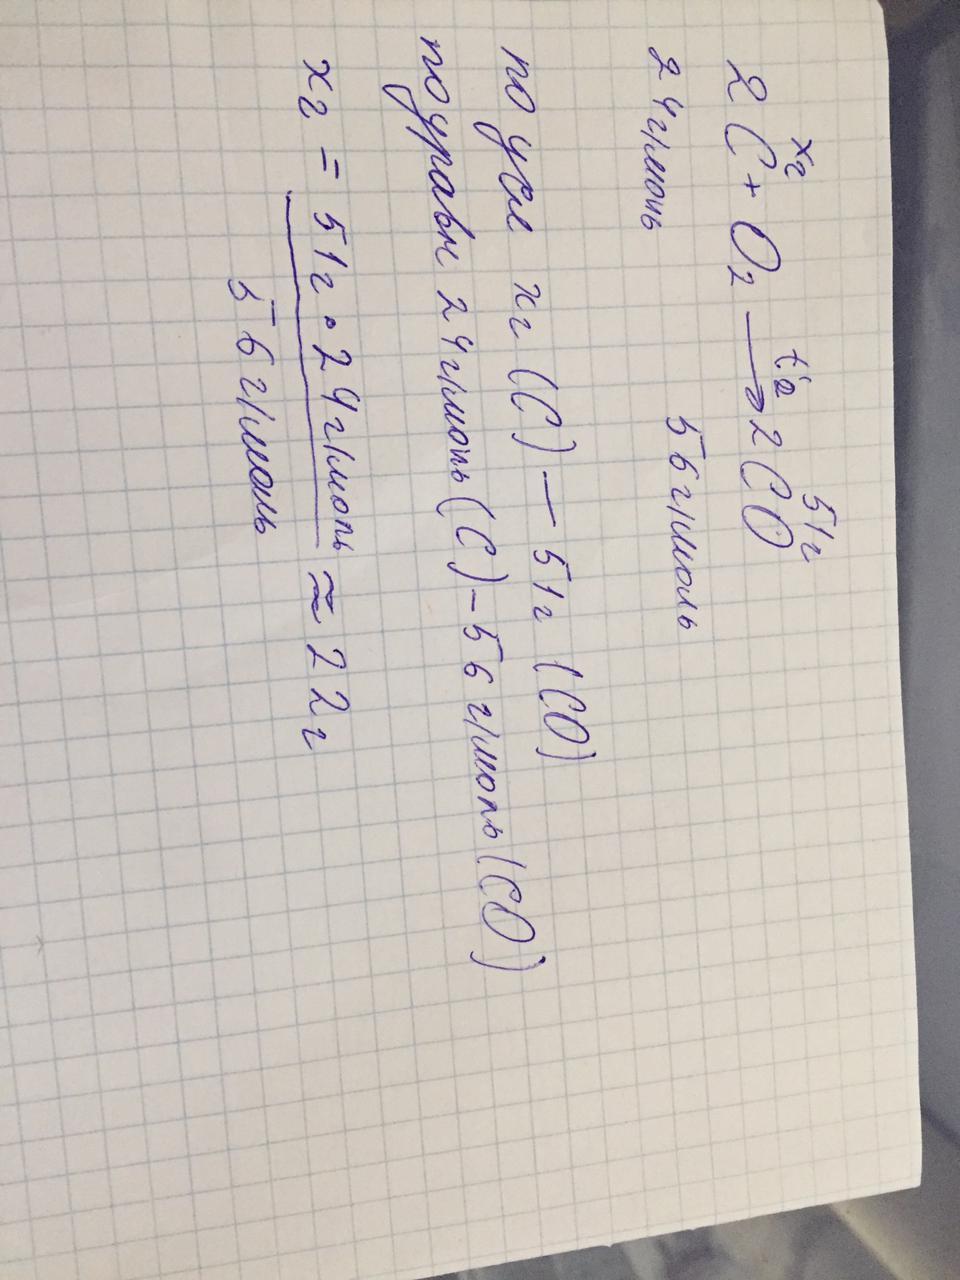 хг 51г
2C + O₂ →t° 2CO
24г/моль 56г/моль
по усл хг (C) — 51г (CO)
по уравн 24г/моль (C) — 56г/моль (CO)
хг = 51г · 24г/моль ≈ 22г
56г/моль